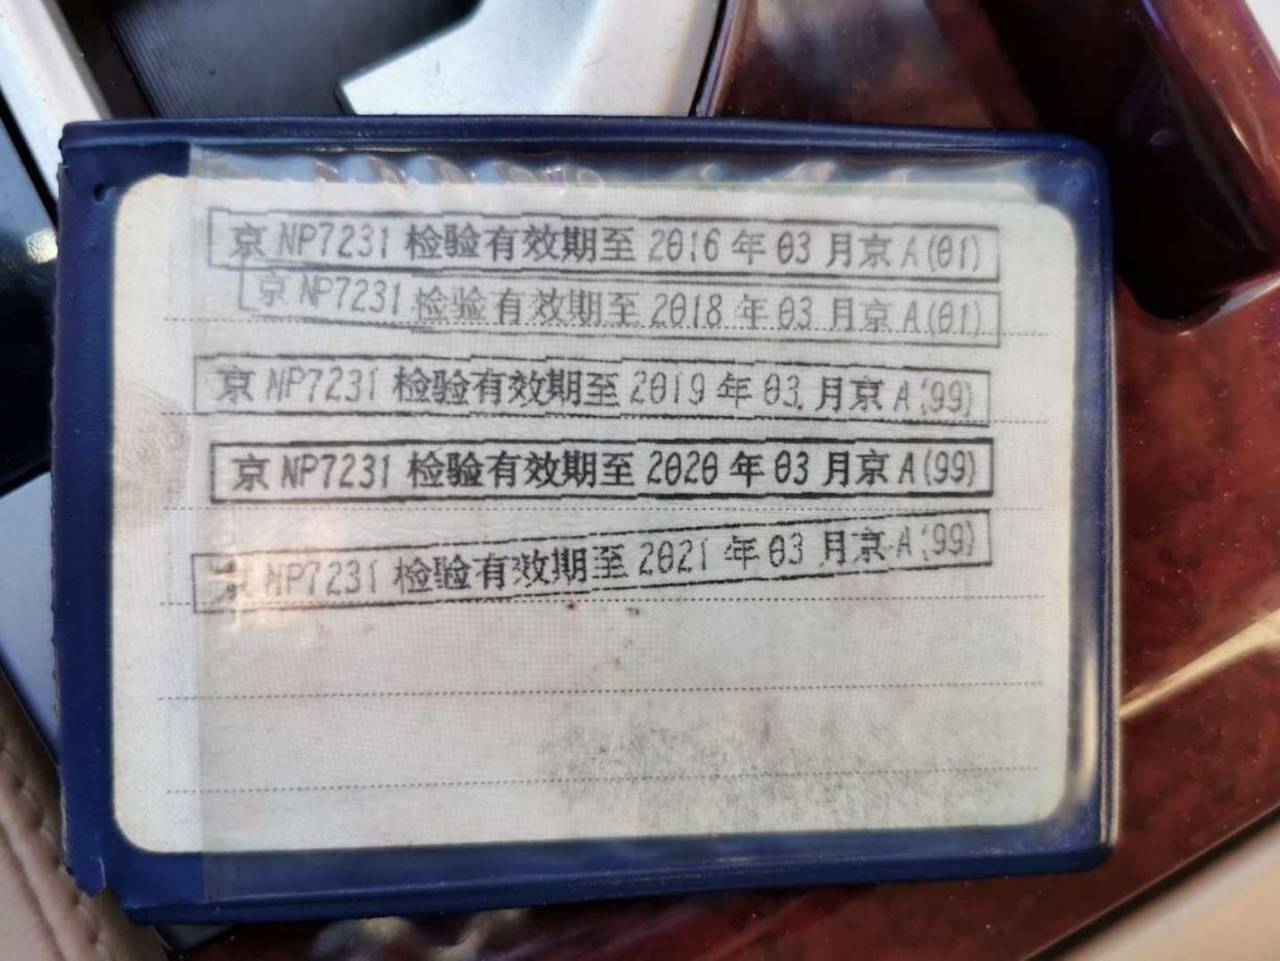 京 NP7231 检验有效期至 2016 年 03 月京 A(01)
京 NP7231 检验有效期至 2018 年 03 月京 A(01)
京 NP7231 检验有效期至 2019 年 03 月京 A(99)
京 NP7231 检验有效期至 2020 年 03 月京 A(99)
京 NP7231 检验有效期至 2021 年 03 月京 A(99)